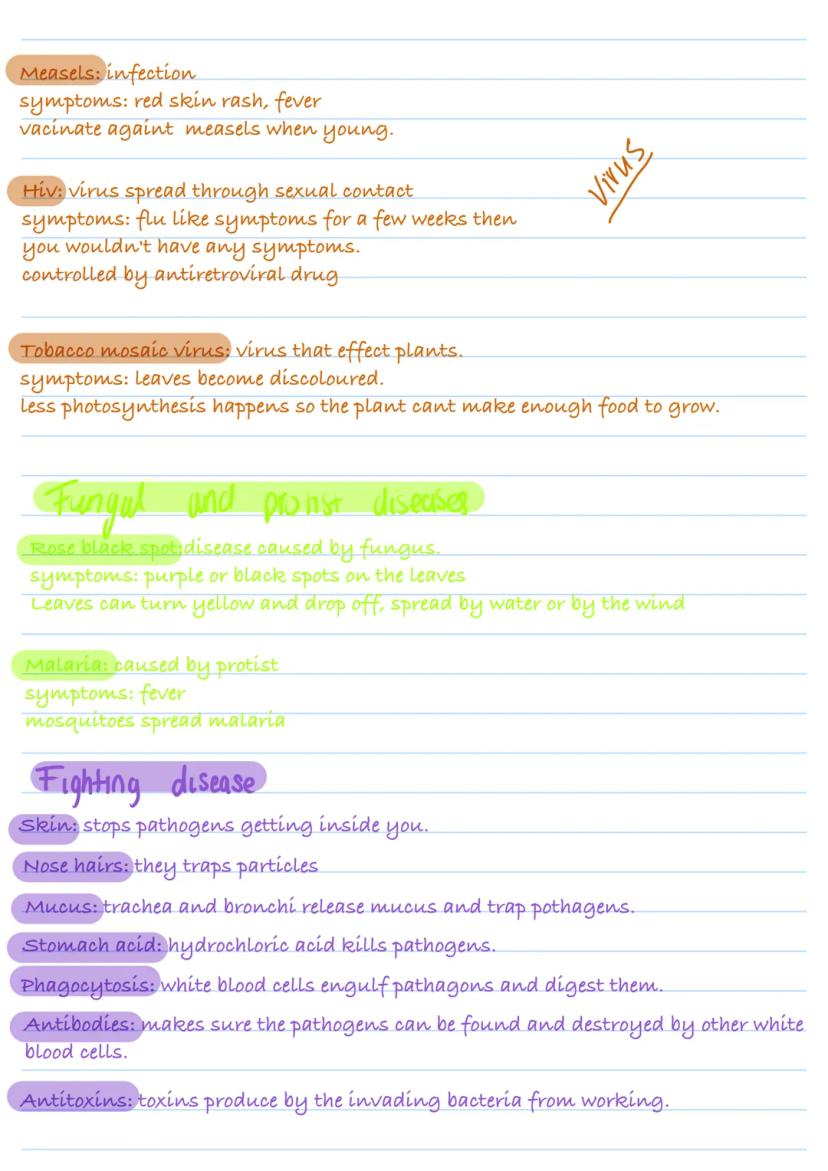 Measels: infection
symptoms: red skin rash, fever
vacinate againt measels when young.
Virus
Hiv: virus spread through sexual contact
symptoms: flu like symptoms for a few weeks then
you wouldn't have any symptoms.
controlled by antiretroviral drug
Tobacco mosaic virus: virus that effect plants.
symptoms: leaves become discoloured.
less photosynthesis happens so the plant cant make enough food to grow.
Fungal and protist diseases
Rose black spot: disease caused by fungus.
symptoms: purple or black spots on the leaves
Leaves can turn yellow and drop off, spread by water or by the wind
Malaria: caused by protist
symptoms: fever
mosquitoes spread malaria
Fighting disease
Skin: stops pathogens getting inside you.
Nose hairs: they traps particles
Mucus: trachea and bronchi release mucus and trap pothagens.
Stomach acid: hydrochloric acid kills pathogens.
Phagocytosis: white blood cells engulf pathagons and digest them.
Antibodies: makes sure the pathogens can be found and destroyed by other white
blood cells.
Antitoxins: toxins produce by the invading bacteria from working.